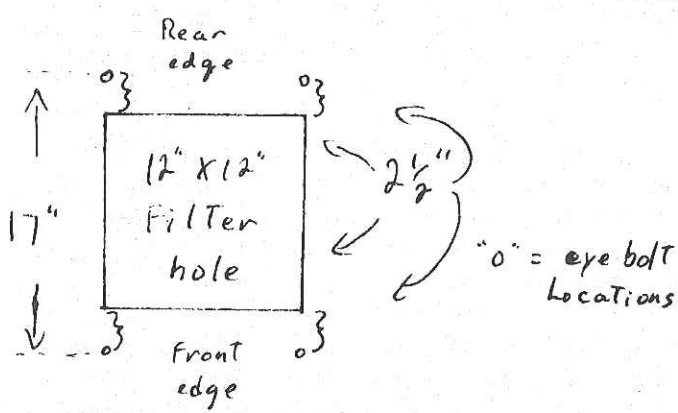 Rear
edge
12" X 12"
Filter
hole
17"
2 1/2"
"o" = eye bolt
Locations
Front
edge